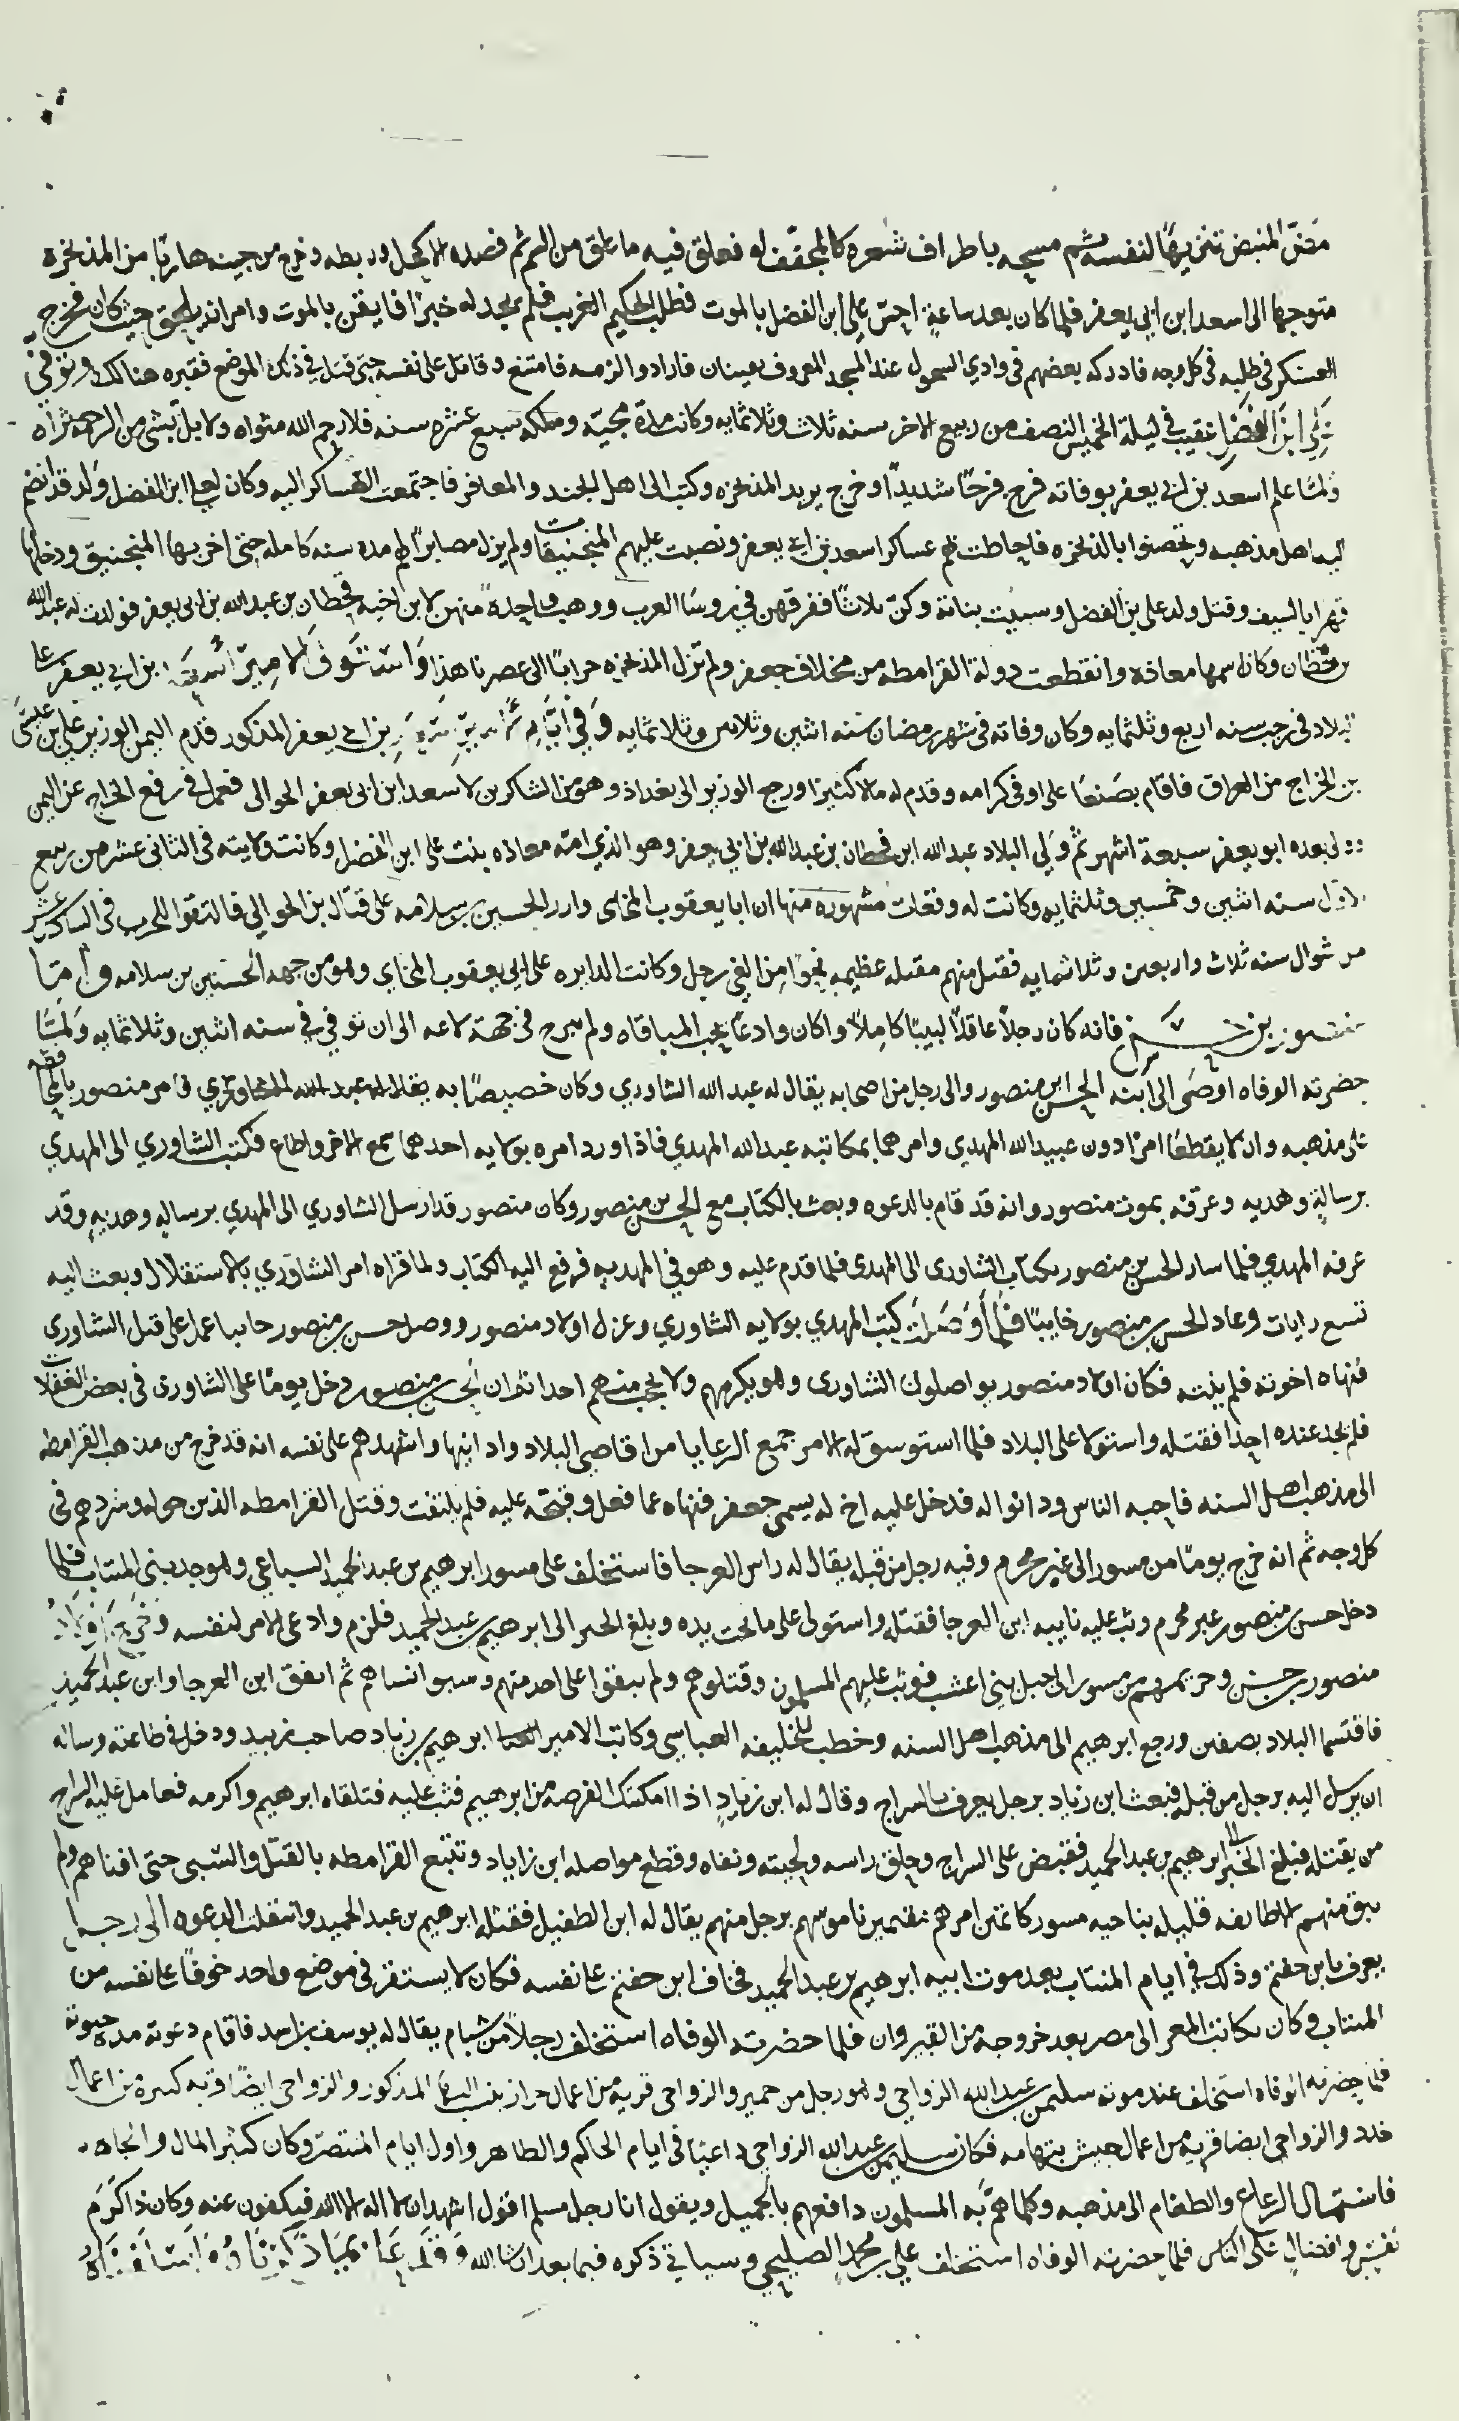 مص المبضع تنزيها لنفسه ثم مسحه باطراف شعره كالمجفف له فعلق فيه ما علق من السم ثم فصده الاكحل وربطه وخرج من حينه هاربا من المذيخره
متوجها الى اسعد ابن ابي يعفر فلما كان بعد ساعة احس علي ابن الفضل بالموت فطلب الحكيم الغريب فلم يجد له خبرا فايقن بالموت وامر انه يلحق حيث كان فخرج
العسكر في طلبه في كل وجه فادركه بعضهم في وادي السحول عند المسجد المعروف بعينان فارادوا لزمه فامتنع وقاتل على نفسه حتى قتل في ذلك الموضع فقبره هنالك وتوفي
علي ابن الفضل عقيب في ليلة الخميس النصف من ربيع الاخر سنه ثلاث وثلاثمايه وكانت مدة محنته وملكه سبع عشره سنه فلا رحم الله مثواه ولا بل بشي من الرحمه ثراه
ولما علم اسعد بن ابي يعفر بوفاته فرح فرحا شديدا وخرج يريد المذيخره وكتب الى اهل الجند والمعافر فاجتمعت العساكر اليه وكان لعلي ابن الفضل ولد قد انضم
اليه اهل مذهبه وتحصنوا بالمذيخره فاحاطت بهم عساكر اسعد بن ابي يعفر ونصبت عليهم المنجنيقات ولم يزل مصابرا لهم مده سنه كامله حتى اخربها المنجنيق ودخلها
قهرا بالسيف وقتل ولد علي بن الفضل وسبيت بناته وكن ثلاثا ففرقهن في روسا العرب ووهب واحدة منهن لابن اخيه قحطان بن عبدالله بن ابي يعفر فولدت له عبدالله
بن قحطان وكان اسمها معاذه وانقطعت دولة القرامطه من مخلاف جعفر ولم تزل المذيخره خرابا الى عصرنا هذا واستوثق الامر اسعد بن ابي يعفر على
البلاد في رجب سنه اربع وثلثمايه وكان وفاته في شهر رمضان سنه اثنين وثلاثين وثلاثمايه وفي ايام بن ابي يعفر المذكور قدم اليمن الوزير علي بن عيسى
بن الجراح من العراق فاقام بصنعا على اوفى كرامه وقدم له مالا كثيرا ورجع الوزير الى بغداذ وهو من الشاكرين لاسعد ابن ابي يعفر الحوالي فعمل في رفع الخراج عن اليمن
بعده ابو يعفر سبعة اشهر ثم ولي البلاد عبدالله ابن قحطان بن عبدالله بن ابي يعفر وهو الذي امه معاذه بنت علي ابن الفضل وكانت ولايته في الثاني عشر من ربيع
الاول سنه اثنين وخمسين وثلثمايه وكانت له وقعات مشهوره منها ان ابا يعقوب وازر الحسين بن سلامه على قتال بن الحوالي فالتقوا للحرب في السادس عشر
من شوال سنه ثلاث واربعين وثلاثمايه فقتل منهم مقتله عظيمه نحوا من الفي رجل وكانت الدايره على ابي يعقوب وهو من جهه الحسين بن سلامه واما
منصور بن حسن فانه كان رجلا عاقلا لبيبا كاملا وكان وادعا يحب المباقاه ولم يبرح في جهة لاعه الى ان توفي في سنه اثنين وثلاثمايه ولما
حضرته الوفاه اوصى الى ابنه الحسن ابن منصور والى رجل من اصحابه يقال له عبد الله الشاوري وكان خصيصا به فامر منصور بالمحافظه
على مذهبه وان لا يقطعا امرا دون عبيد الله المهدي وامرهما بمكاتبه عبدالله المهدي فاذا ورد امره بولايه احدهما سمع الاخر واطاع فكتب الشاوري الى المهدي
برسالة وهديه وعرفه بموت منصور وانه قد قام بالدعوه وبعث بالكتاب مع الحسن بن منصور وكان منصور قد ارسل الشاوري الى المهدي برساله وهديه وقد
عرفه المهدي فلما سار الحسن بن منصور بكتاب الشاوري الى المهدي فلما قدم عليه وهو في المهديه فرفع اليه الكتاب ولما قراه امر الشاوري بالاستقلال وبعث اليه
تسع رايات وعاد الحسن بن منصور خايبا فلما وصلت كتب المهدي بولايه الشاوري وعزل اولاد منصور ووصل حسن بن منصور خايبا عمل على قتل الشاوري
فنهاه اخوته فلم ينته فكان اولاد منصور يواصلون الشاوري وهو يكرمهم ولا يحجب منهم احدا ثم ان الحسن بن منصور دخل يوما على الشاوري في بعض الغفلات
فلم يجد عنده احدا فقتله واستولا على البلاد فلما استوسق له الامر جمع الرعايا من اقاصي البلاد وادانيها واشهدهم على نفسه انه قد خرج من مذهب القرامطه
الى مذهب اهل السنه فاحبه الناس ودانوا له فدخل عليه اخ له يسمى جعفر فنهاه عما فعل وقبحه عليه فلم يلتفت وقتل القرامطه الذين حوله وشردهم في
كل وجه ثم انه خرج يوما من مسور الى عبر محرم وفيه رجل من قبله يقال له راس العرجا فاستخلف على مسور ابرهيم بن عبد الحميد السباعي وهو جد بني المنتاب فلما
دخل حسن بن منصور عبر محرم وثب عليه نايبه ابن العرجا فقتله واستولى على ما تحت يده وبلغ الخبر الى ابرهيم بن عبد الحميد فلزم وادعى الامر لنفسه وخرج اولاد
منصور بن حسن وحريمهم من مسور الى جبل بني اعشب فوثب عليهم المسلمون وقتلوهم ولم يبقوا على احد منهم وسبوا نساهم ثم اتفق ابن العرجا وابن عبد الحميد
فاقتسما البلاد نصفين ورجع ابرهيم الى مذهب اهل السنه وخطب للخليفه العباسي وكاتب الامير ابرهيم بن زياد صاحب زبيد ودخل في طاعته وساله
ان يرسل اليه برجل من قبله فبعث ابن زياد برجل يعرف بالسراج وقال له ابن زياد اذا امكنتك الفرصه من ابرهيم فثب عليه فتلقاه ابرهيم واكرمه فعامل عليه السراج
من يقتله فبلغ الخبر الى ابرهيم بن عبد الحميد فقبض على السراج وحلق راسه ولحيته ونفاه وقطع مواصله ابن زياد وتتبع القرامطه بالقتل والسبي حتى افناهم ولم
يبق منهم الا طايفه قليله بناحيه مسور كاتمين امرهم مقيمين ناموسهم برجل منهم يقال له ابن الطفيل فقتله ابرهيم بن عبد الحميد وانتقلت الدعوه الى رجل
يعرف بابن جفتم وذلك في ايام المنتاب بعد موت ابيه ابرهيم بن عبد الحميد فخاف ابن جفتم على نفسه فكان لا يستقر في موضع واحد خوفا على نفسه من
المنتاب وكان يكاتب المعز الى مصر بعد خروجه من القيروان فلما حضرته الوفاه استخلف رجلا من شبام يقال له يوسف بن اسد فاقام دعوته مده حيوته
فلما حضرته الوفاه استخلف عند موته سليمن بن عبدالله الزواحي وهو رجل من حمير والزواحي قرية من اعمال حراز المذكور والزواحي ايضا قريه كبيره من اعمال
خدد والزواحي ايضا قريه من اعمال حيس بتهامه فكان سليمن بن عبدالله الزواحي داعيا في ايام الحاكم والظاهر واول ايام المنتصر وكان كثير المال والجاه
فاستمال الرعاع والطغام الى مذهبه وكلما هم به المسلمون دافعهم بالجميل ويقول انا رجل مسلم اقول اشهد ان لا اله الا الله فيكفون عنه وكان ذا كرم
نفيس وافضال على الناس فلما حضرته الوفاه استخلف علي بن محمد الصليحي وسياتي ذكره فيما بعد ان شا الله